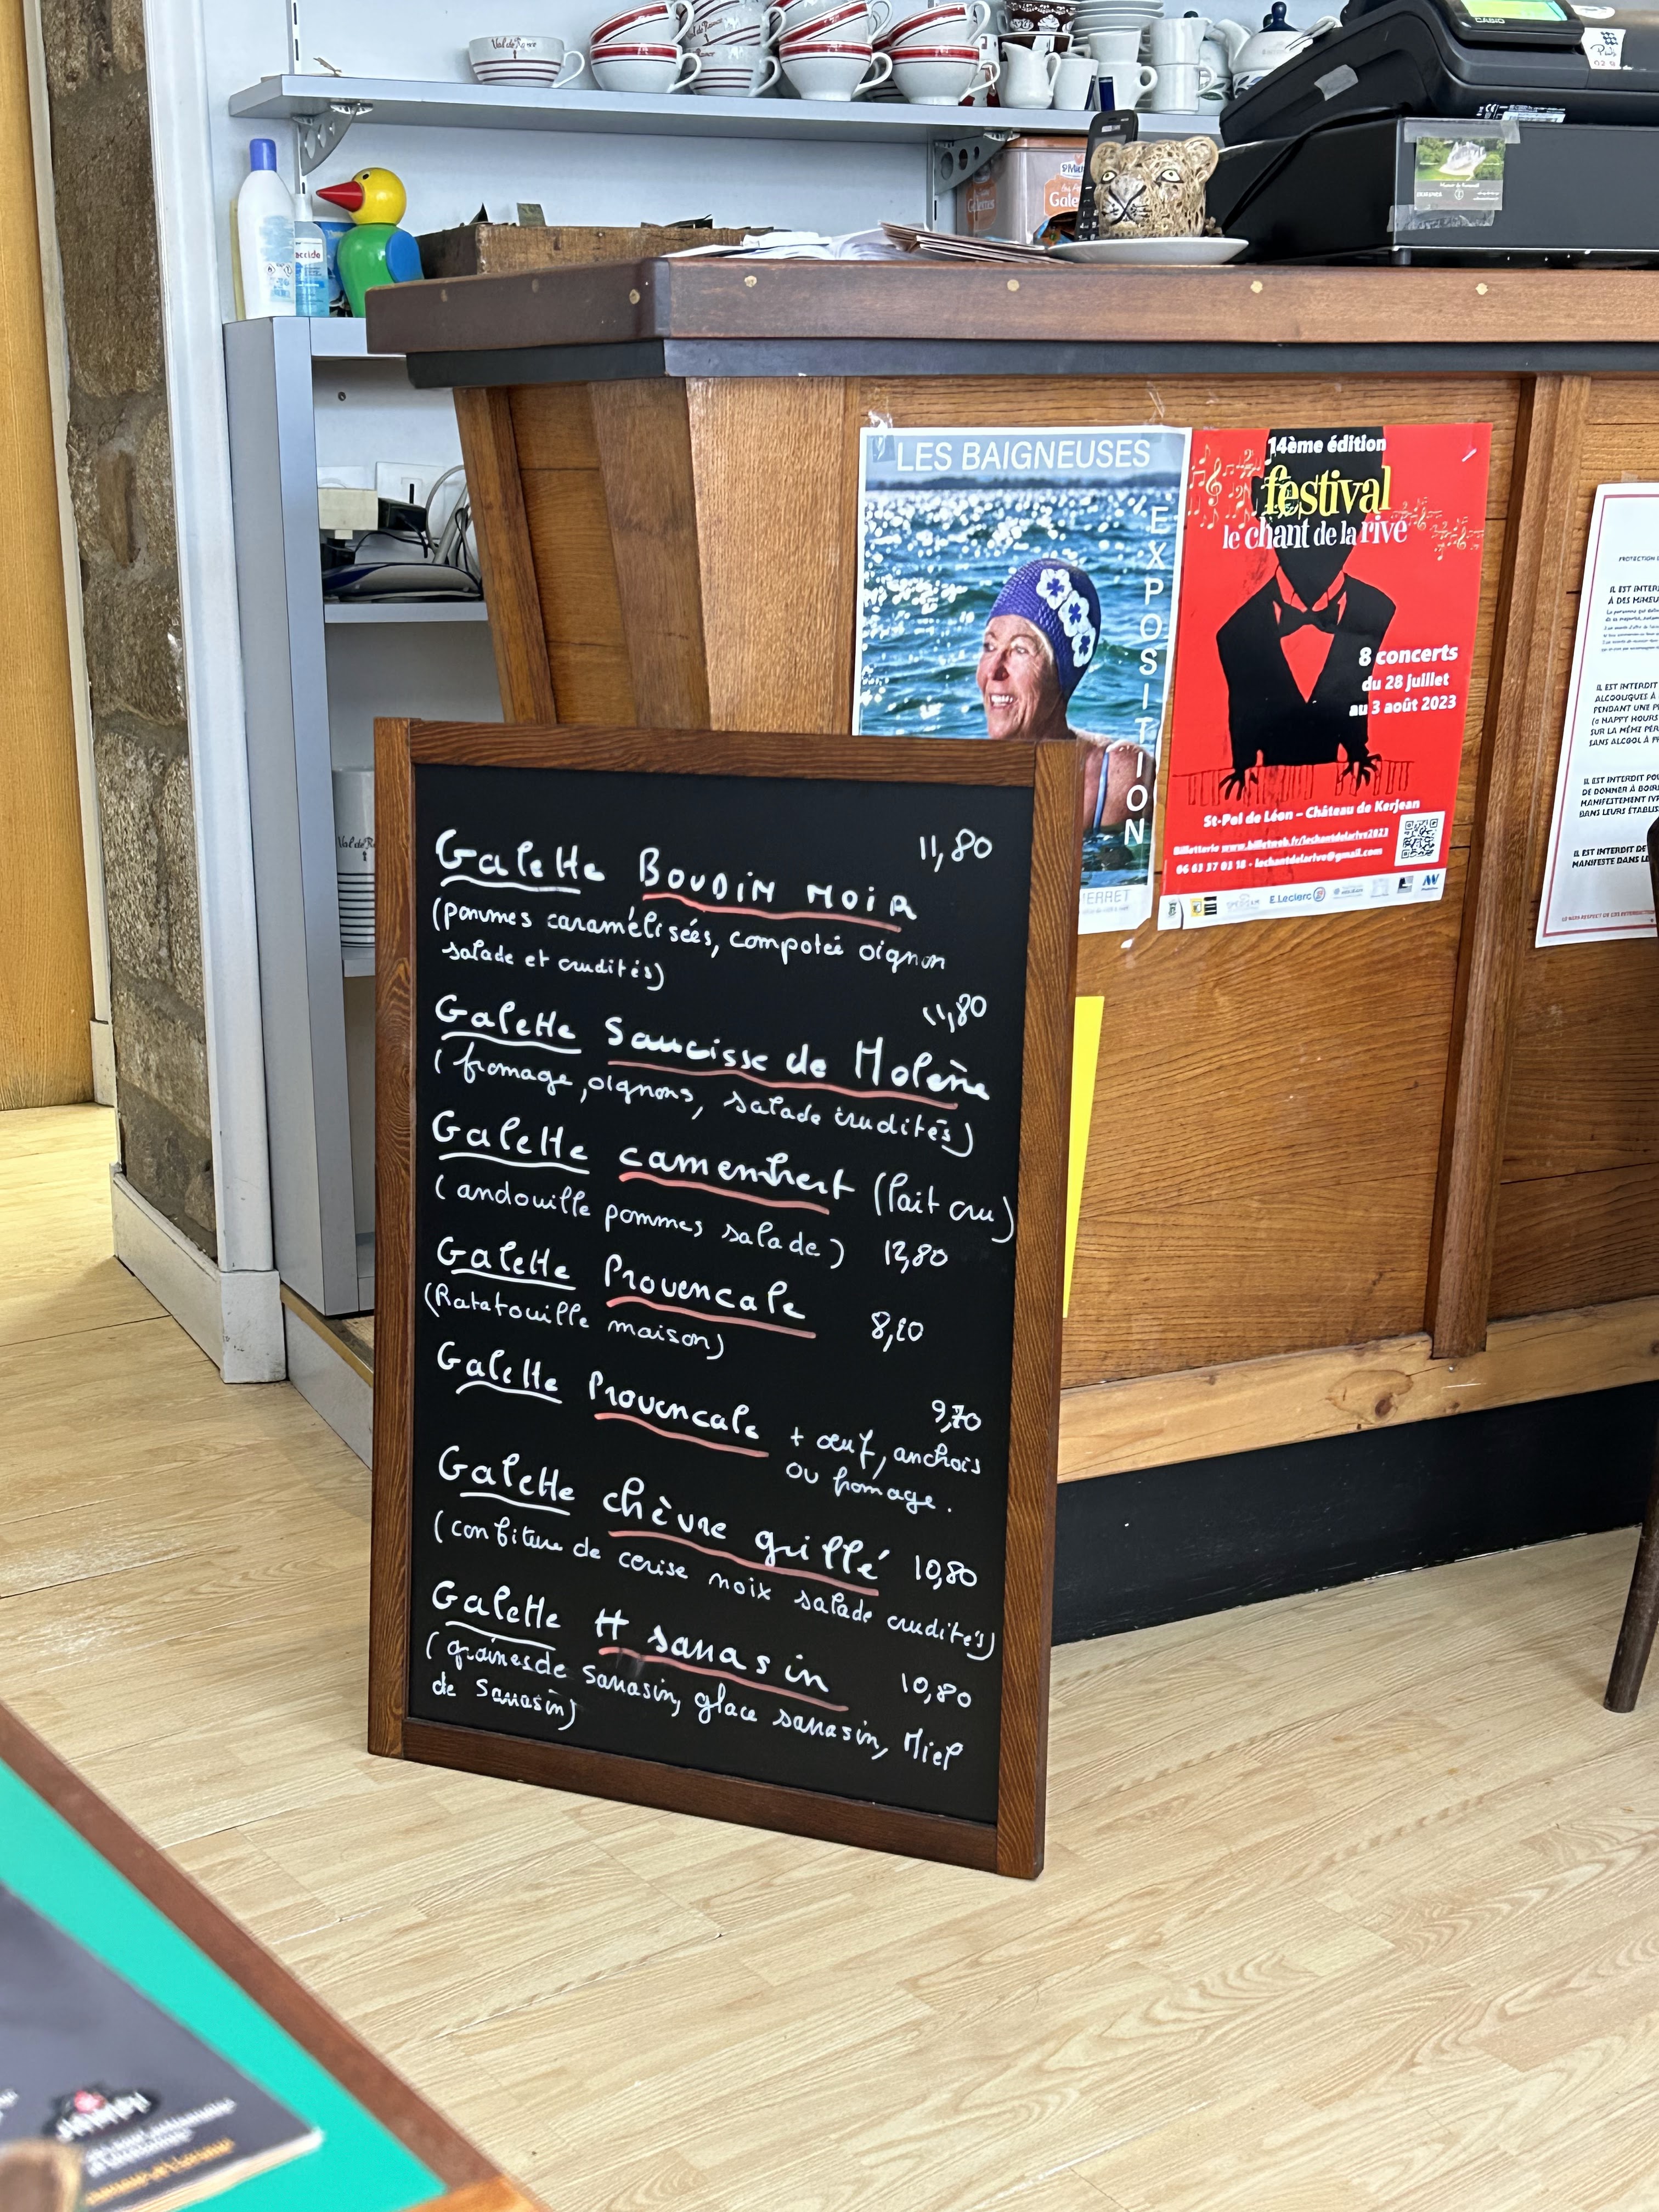 Val de Rance
CASIO
St Michel
Galettes
LES BAIGNEUSES
EXPOSITION
14ème édition
festival
le chant de la rive
8 concerts
du 28 juillet
au 3 août 2023
St-Pol de Léon - Château de Kerjean
Billetterie www.billetweb.fr/lechantdelarive2023
06 63 37 03 18 - lechantdelarive@gmail.com
E.Leclerc
IL EST INTERDIT
ALCOOLIQUES À
PENDANT UNE
SANS ALCOOL À
IL EST INTERDIT
DE DONNER À BOIRE
DANS LEURS
IL EST INTERDIT DE
MANIFESTE DANS
Galette Boudin noir 11,80
(pommes caramélisées, compotée oignon
salade et crudités)
11,80
Galette Saucisse de Molène
(fromage, oignons, salade crudités)
Galette camembert (lait cru)
(andouille pommes salade)
Galette Provencale
(Ratatouille maison) 8,20
Galette Provencale 9,70
+ œuf, anchois
ou fromage.
Galette chèvre grillé 10,80
(confiture de cerise noix salade crudités)
Galette tt sarrasin 10,80
(graines de Sarrasin, glace sarrasin, Miel
de Sarrasin)